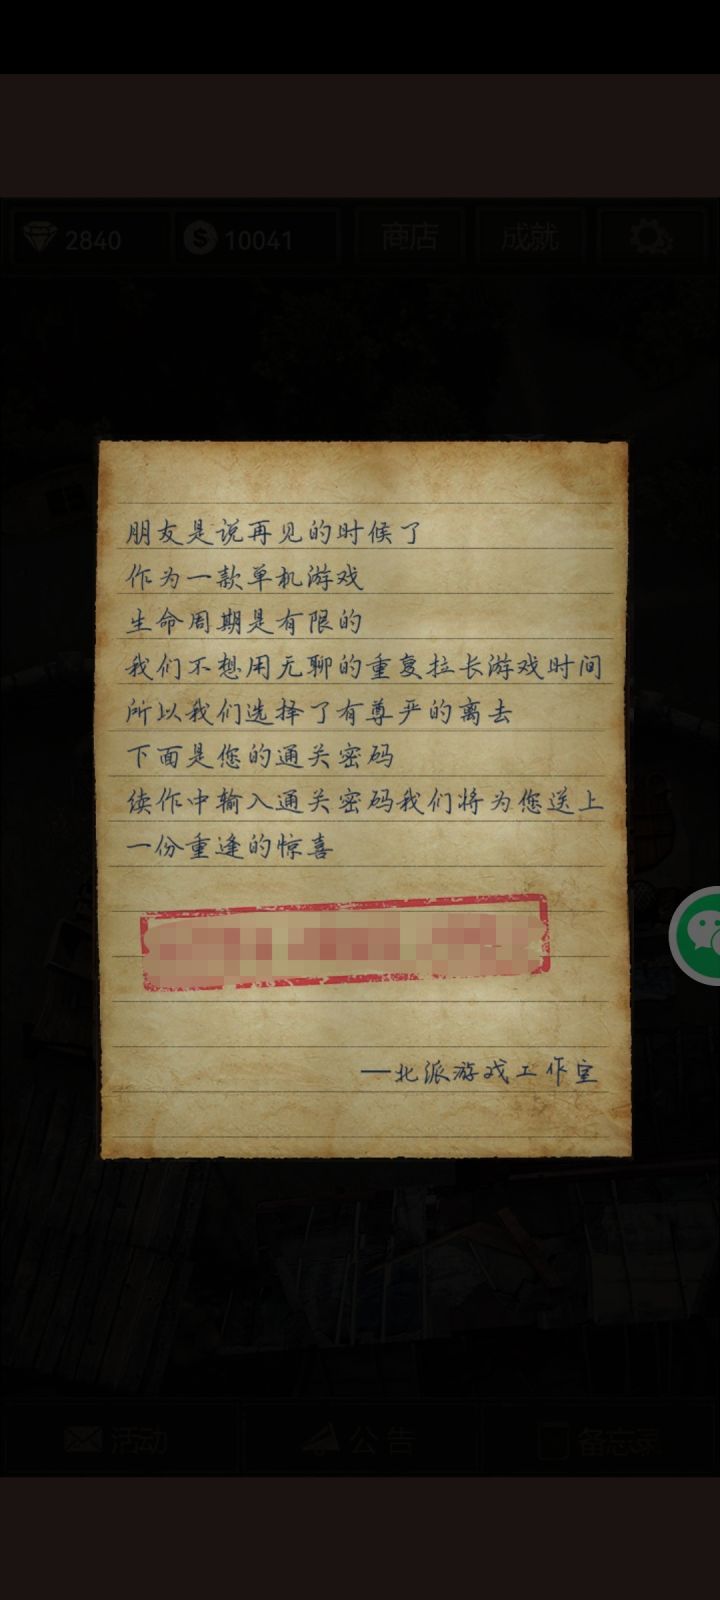 2840
10041
商店
成就
朋友是说再见的时候了
作为一款单机游戏
生命周期是有限的
我们不想用无聊的重复拉长游戏时间
所以我们选择了有尊严的离去
下面是您的通关密码
续作中输入通关密码我们将为您送上
一份重逢的惊喜
—北派游戏工作室
活动
公告
备忘录